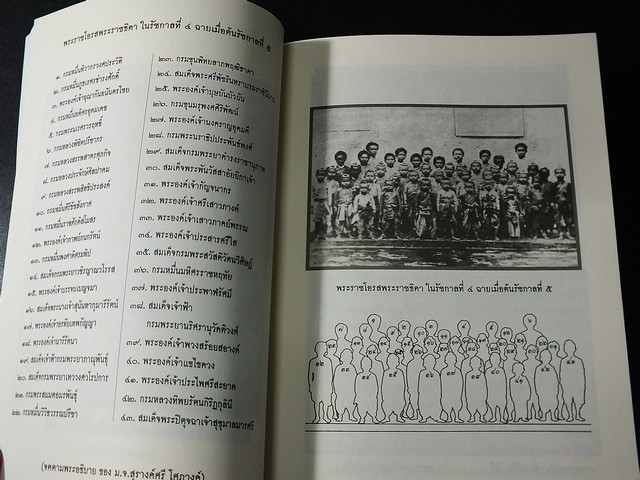 พระราชโอรสพระราชธิดา ในรัชกาลที่ ๔ ฉายเมื่อต้นรัชกาลที่ ๕
๑. กรมหมื่นทิวากรวงศประวัติ
๒. กรมหมื่นภูธเรศธำรงศักดิ์
๓. พระองค์เจ้าอุณากันอนันตนรไชย
๔. กรมหมื่นอดิศรอุดมเดช
๕. กรมพระนเรศวรฤทธิ์
๖. กรมหลวงพิชิตปรีชากร
๗. กรมหลวงสรรพสาตรศุภกิจ
๘. กรมหลวงประจักษ์ศิลปาคม
๙. กรมหลวงสรรพสิทธิประสงค์
๑๐. กรมหมื่นศิริธัชสังกาศ
๑๑. กรมหมื่นราชศักดิสโมสร
๑๒. พระองค์เจ้ากาพย์กนกรัตน์
๑๓. กรมหมื่นพงศาดิศรมหิป
๑๔. สมเด็จกรมพระยาวชิรญาณวโรรส
๑๕. พระองค์เจ้าบรรจบเบญจมา
๑๖. สมเด็จพระนางเจ้าสุนันทากุมารีรัตน์
๑๗. พระองค์เจ้าอรทัยเทพกัญญา
๑๘. พระองค์เจ้านารีรัตนา
๑๙. สมเด็จเจ้าฟ้ากรมพระยาภาณุพันธุ์
๒๐. สมเด็จกรมพระยาเทววงศวโรปการ
๒๑. กรมพระสมมตอมรพันธุ์
๒๒. กรมหมื่นวิวิธวรรณปรีชา
๒๓. กรมขุนพิทยลาภพฤฒิธาดา
๒๔. สมเด็จพระศรีพัชรินทราบรมราชินีนาถ
๒๕. พระองค์เจ้าบุษบันบัวผัน
๒๖. กรมขุนมรุพงศศิริพัฒน์
๒๗. พระองค์เจ้านงคราญอุดมดี
๒๘. กรมพระนราธิปประพันธ์พงศ์
๒๙. สมเด็จกรมพระยาดำรงราชานุภาพ
๓๐. สมเด็จพระพันวัสสาอัยยิกาเจ้า
๓๑. พระองค์เจ้ากัญจนากร
๓๒. พระองค์เจ้าศรีเสาวภางค์
๓๓. พระองค์เจ้าเสาวภาคย์พรรณ
๓๔. พระองค์เจ้าประสารศรีใส
๓๕. สมเด็จกรมพระสวัสดิวัดนวิศิษฎ์
๓๖. กรมหมื่นมหิศรราชหฤทัย
๓๗. พระองค์เจ้าประพาฬรัศมี
๓๘. สมเด็จเจ้าฟ้า
กรมพระยานริศรานุวัดติวงศ์
๓๙. พระองค์เจ้าพวงสร้อยสอางค์
๔๐. พระองค์เจ้าแขไขดวง
๔๑. พระองค์เจ้าประไพศรีสะอาด
๔๒. กรมหลวงทิพยรัตนกิริฏกุลินี
๔๓. สมเด็จพระปิตุจฉาเจ้าสุขุมาลมารศรี
(จดตามพระอธิบาย ของ ม.จ.สุรางค์ศรี โศภางค์)
พระราชโอรสพระราชธิดา ในรัชกาลที่ ๔ ฉายเมื่อต้นรัชกาลที่ ๕